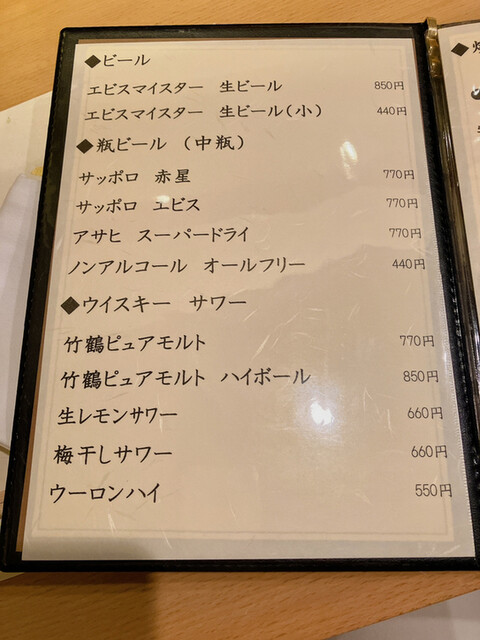 ◆ビール
エビスマイスター 生ビール 850円
エビスマイスター 生ビール(小) 440円
◆瓶ビール (中瓶)
サッポロ 赤星 770円
サッポロ エビス 770円
アサヒ スーパードライ 770円
ノンアルコール オールフリー 440円
◆ウイスキー サワー
竹鶴ピュアモルト 770円
竹鶴ピュアモルト ハイボール 850円
生レモンサワー 660円
梅干しサワー 660円
ウーロンハイ 550円